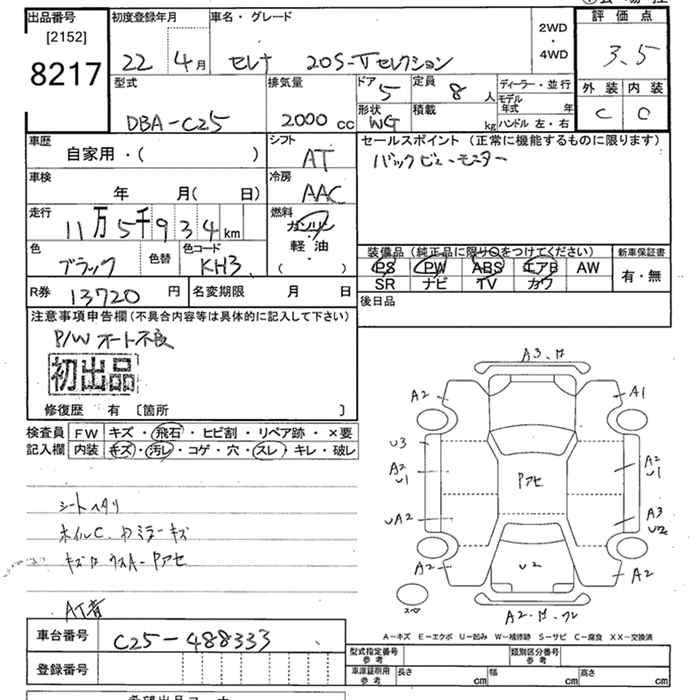 出品番号 初度登録年月 車名・グレード 2WD・4WD 評価点
[2152]
8217 22 4月 セレナ 20S-Vセレクション 3.5
型式 排気量 ドア 5 定員 8人 ディーラー・並行 外装 内装
DBA-C25 2000cc 形状 WG 積載 kg モデル年式 年 C
ハンドル 左・右
車歴 シフト セールスポイント (正常に機能するものに限ります)
自家用・( ) AT バックビューモニター
車検 冷房
年 月( 日) AAC
走行 燃料
11万5千934km ガソリン・軽油・( )
色 色替 色コード 装備品 (純正品に限り○をつけてください) 新車保証書
ブラック KH3 PS PW ABS エアB AW 有・無
SR ナビ TV カワ
R券 13720円 名変期限 月 日 後日品
注意事項申告欄 (不具合内容等は具体的に記入して下さい)
P/W オート不良
初出品
修復歴 有 [箇所 ]
検査員 FW キズ・飛石・ヒビ割・リペア跡・×要
記入欄 内装 キズ・汚レ・コゲ・穴・スレ・キレ・破レ
A2 A1
U3
A2 U1 Pアセ A2 U1
UA2 A3 U2
U2
A2 A2
シートヘタリ
ホイルC. ドミラーキズ
AT書
A-キズ E-エクボ U-凹み W-補修跡 S-サビ C-腐食 XX-交換済
車台番号 C25-488333
型式指定番号 参考 類別区分番号 参考
登録番号 車庫証明用 参考 長さ cm 幅 cm 高さ cm